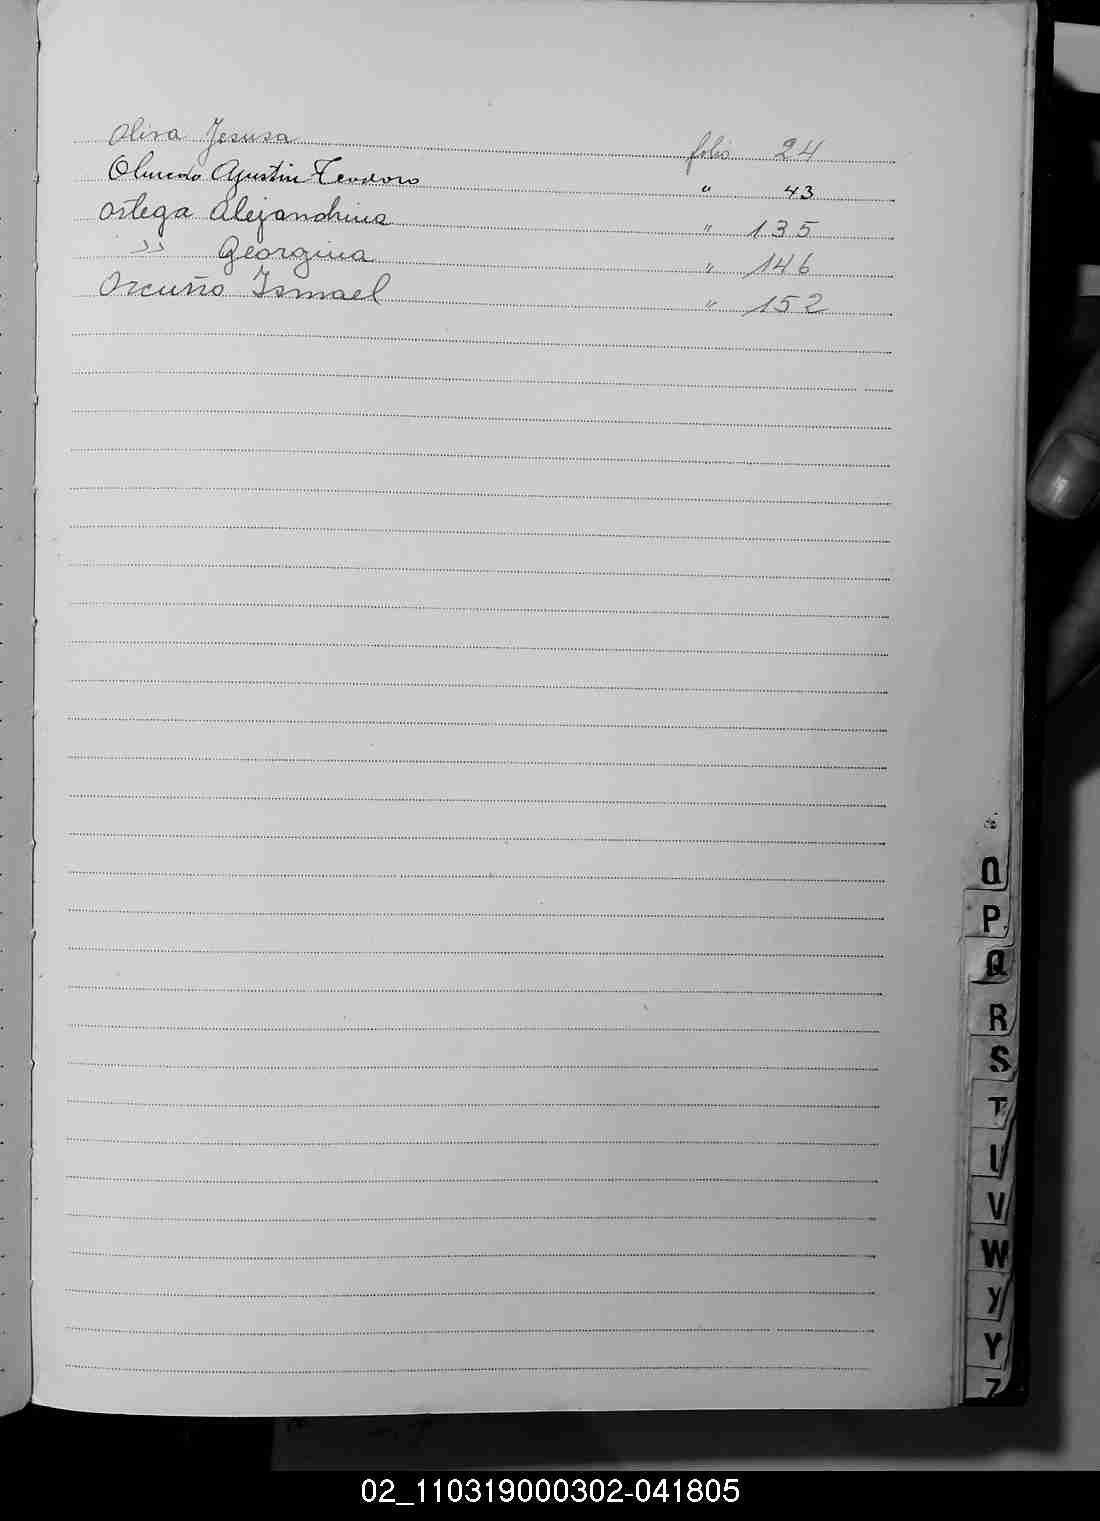 Oliva Jesusa folio 24
Olmedo Agustin Teodoro " 43
Ortega Alejandrina " 135
" Georgina " 146
Orcuño Ismael " 152
O
P
Q
R
S
T
U
V
W
X
Y
Z
02_110319000302-041805